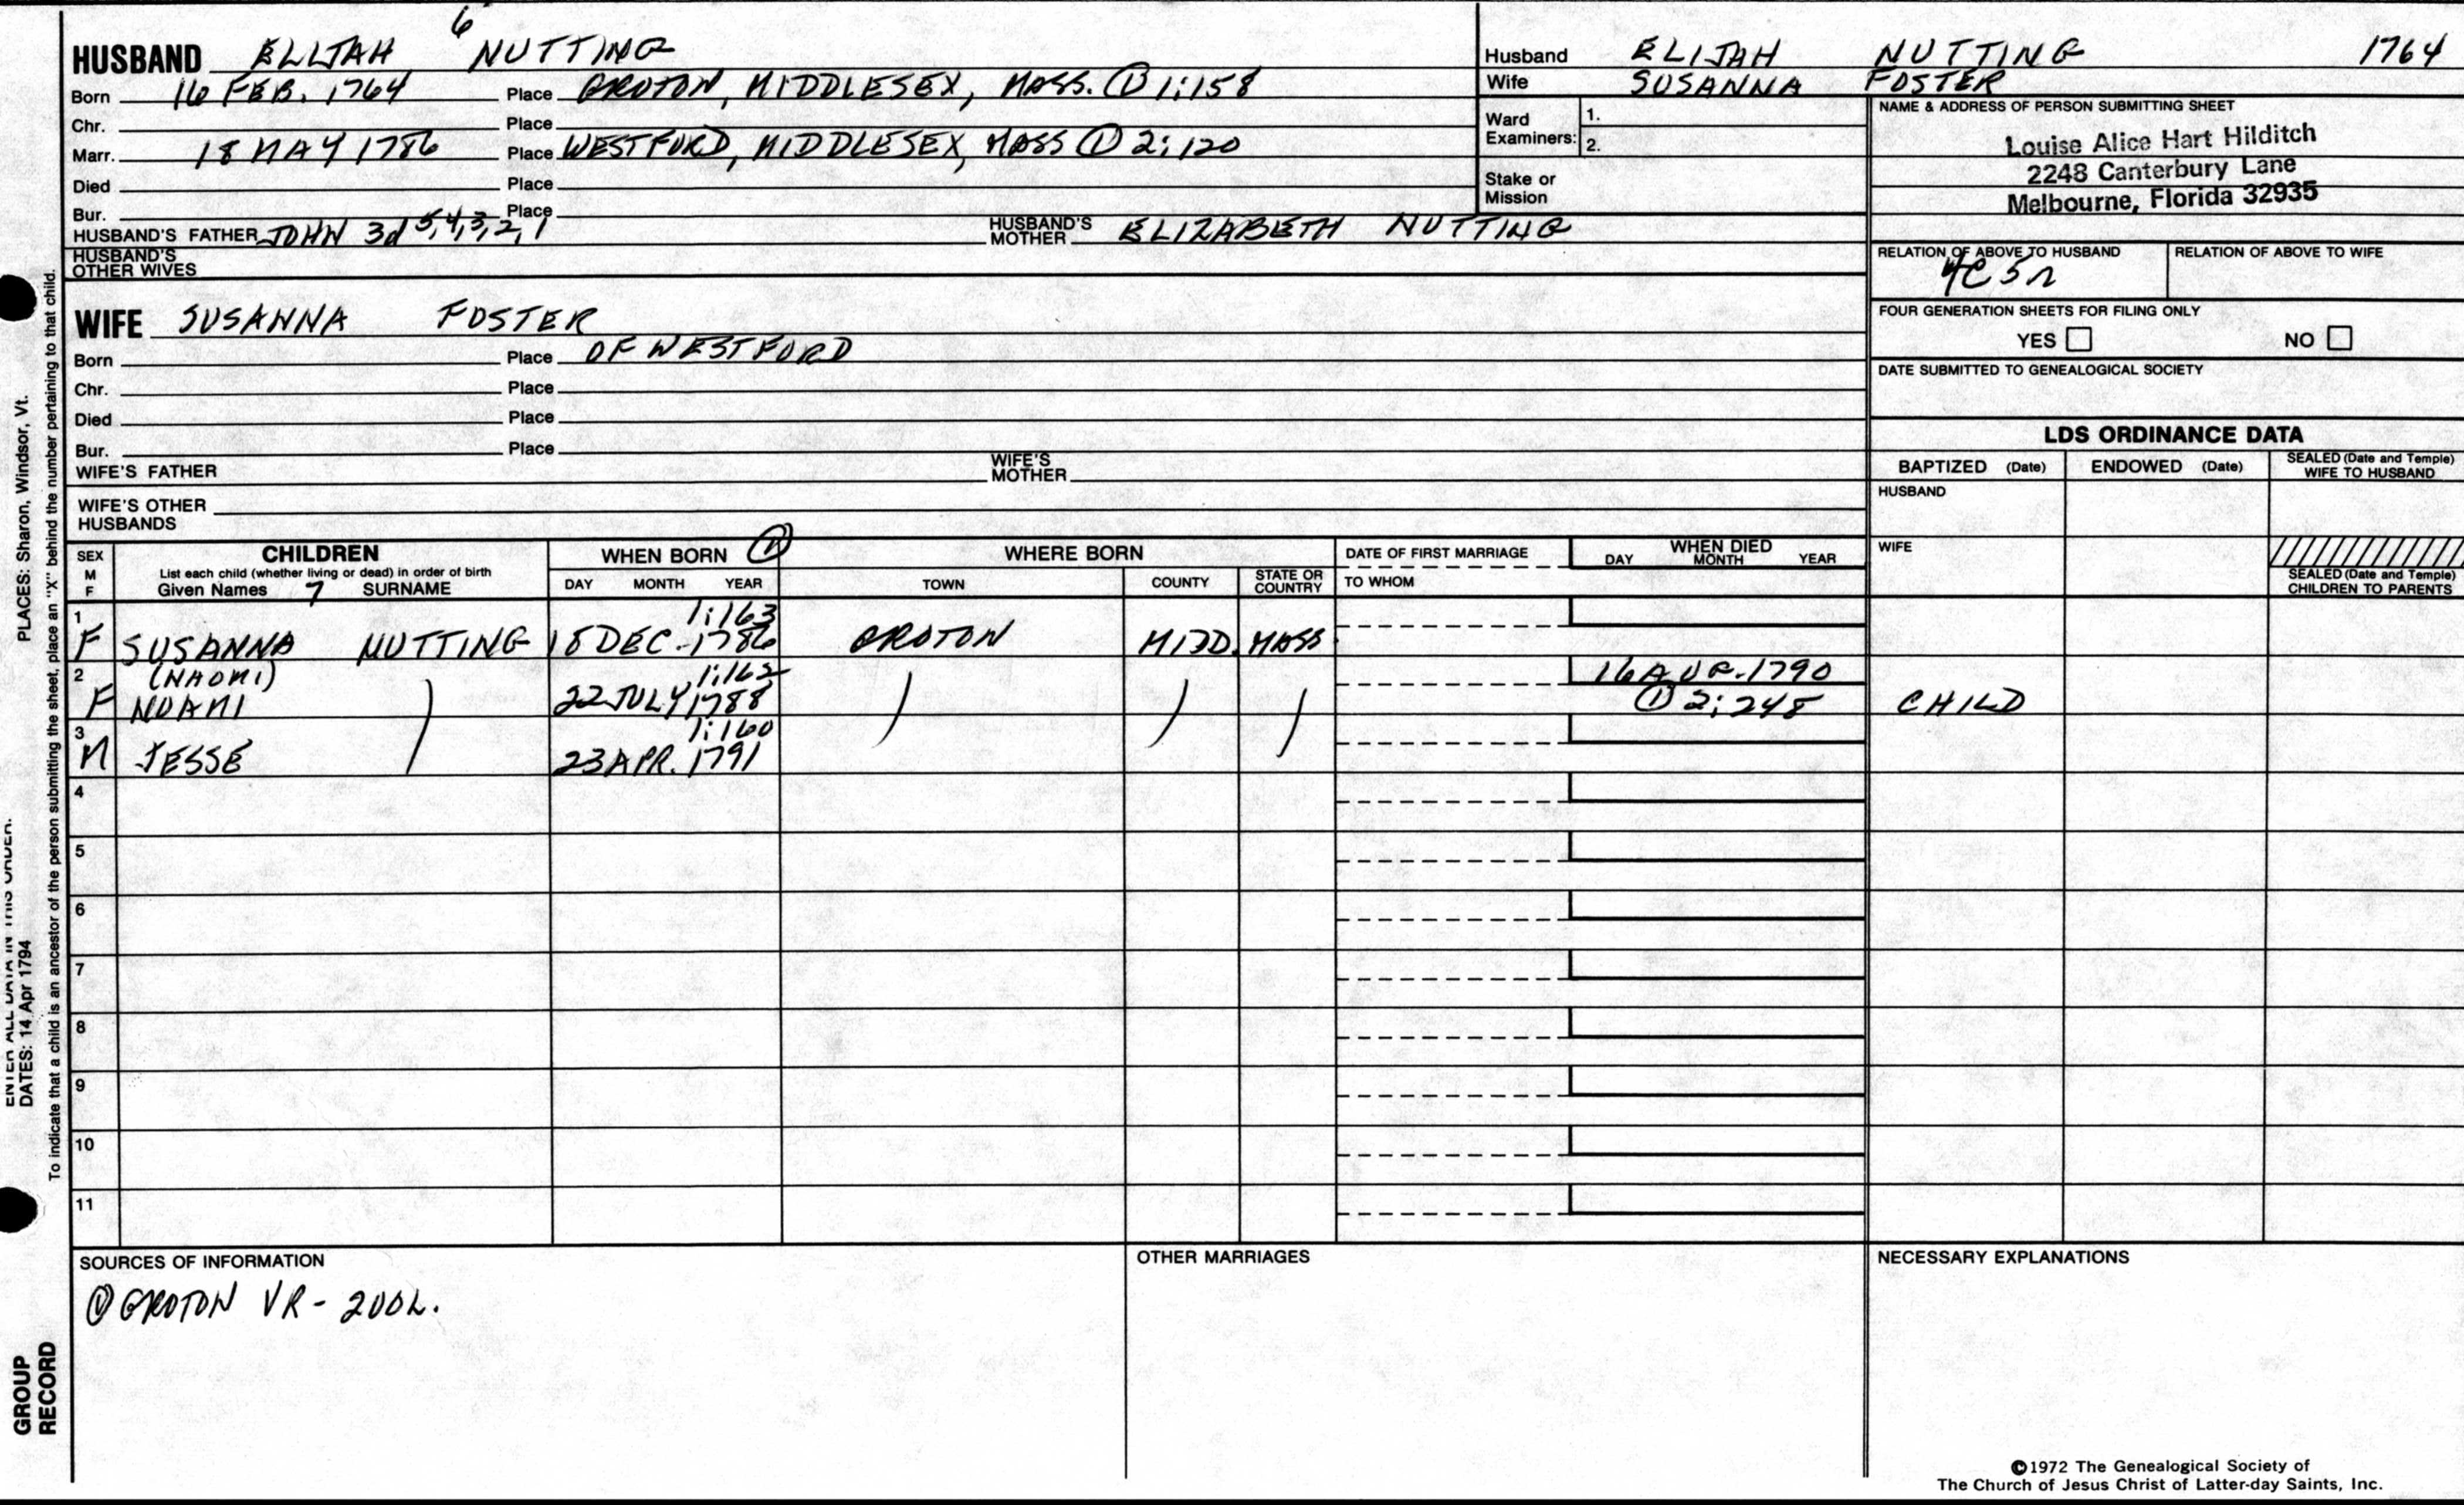 6
HUSBAND ELIJAH NUTTING
Born 16 FEB. 1764 Place GROTON, MIDDLESEX, MASS. ① 1:158
Chr. Place
Marr. 18 MAY 1786 Place WESTFORD, MIDDLESEX, MASS ① 2:120
Died Place
Bur. Place
HUSBAND'S FATHER JOHN 3d 5,4,3,2,1 HUSBAND'S MOTHER ELIZABETH NUTTING
HUSBAND'S OTHER WIVES
WIFE SUSANNA FOSTER
Born Place OF WESTFORD
Chr. Place
Died Place
Bur. Place
WIFE'S FATHER WIFE'S MOTHER
WIFE'S OTHER HUSBANDS
Husband ELIJAH NUTTING 1764
Wife SUSANNA FOSTER
Ward Examiners: 1.
2.
Stake or Mission
NAME & ADDRESS OF PERSON SUBMITTING SHEET
Louise Alice Hart Hilditch
2248 Canterbury Lane
Melbourne, Florida 32935
RELATION OF ABOVE TO HUSBAND RELATION OF ABOVE TO WIFE
4C5r
FOUR GENERATION SHEETS FOR FILING ONLY
YES NO
DATE SUBMITTED TO GENEALOGICAL SOCIETY
LDS ORDINANCE DATA
BAPTIZED (Date) ENDOWED (Date) SEALED (Date and Temple) WIFE TO HUSBAND
HUSBAND
WIFE
SEALED (Date and Temple) CHILDREN TO PARENTS
SEX M F CHILDREN WHEN BORN ① WHERE BORN DATE OF FIRST MARRIAGE WHEN DIED
List each child (whether living or dead) in order of birth
Given Names 7 SURNAME DAY MONTH YEAR TOWN COUNTY STATE OR COUNTRY TO WHOM DAY MONTH YEAR
1 1:163
F SUSANNA NUTTING 18 DEC. 1786 GROTON MIDD. MASS.
2 (NAOMI) 1:162 16 AUG. 1790
F NOAMI 22 JULY 1788 ① 2:248 CHILD
3 1:160
M JESSE 23 APR. 1791
4
5
6
7
8
9
10
11
SOURCES OF INFORMATION OTHER MARRIAGES NECESSARY EXPLANATIONS
① GROTON VR - 2VOL.
©1972 The Genealogical Society of
The Church of Jesus Christ of Latter-day Saints, Inc.
To indicate that a child is an ancestor of the person submitting the sheet, place an "X" behind the number pertaining to that child.
PLACES: Sharon, Windsor, Vt.
ENTER ALL DATA IN THIS ORDER:
DATES: 14 Apr 1794
GROUP
RECORD